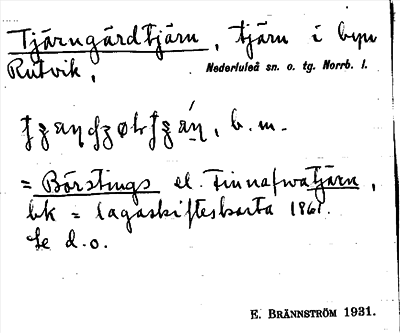 Tjärngärdtjärn, tjärn i byn
Rutvik,
Nederluleå sn. o. tg. Norrb. l.
b. m.
= Börstings el. Finnafwatjärn,
bk = lagaskifteskarta 1861.
Se d.o.
E. BRÄNNSTRÖM 1931.